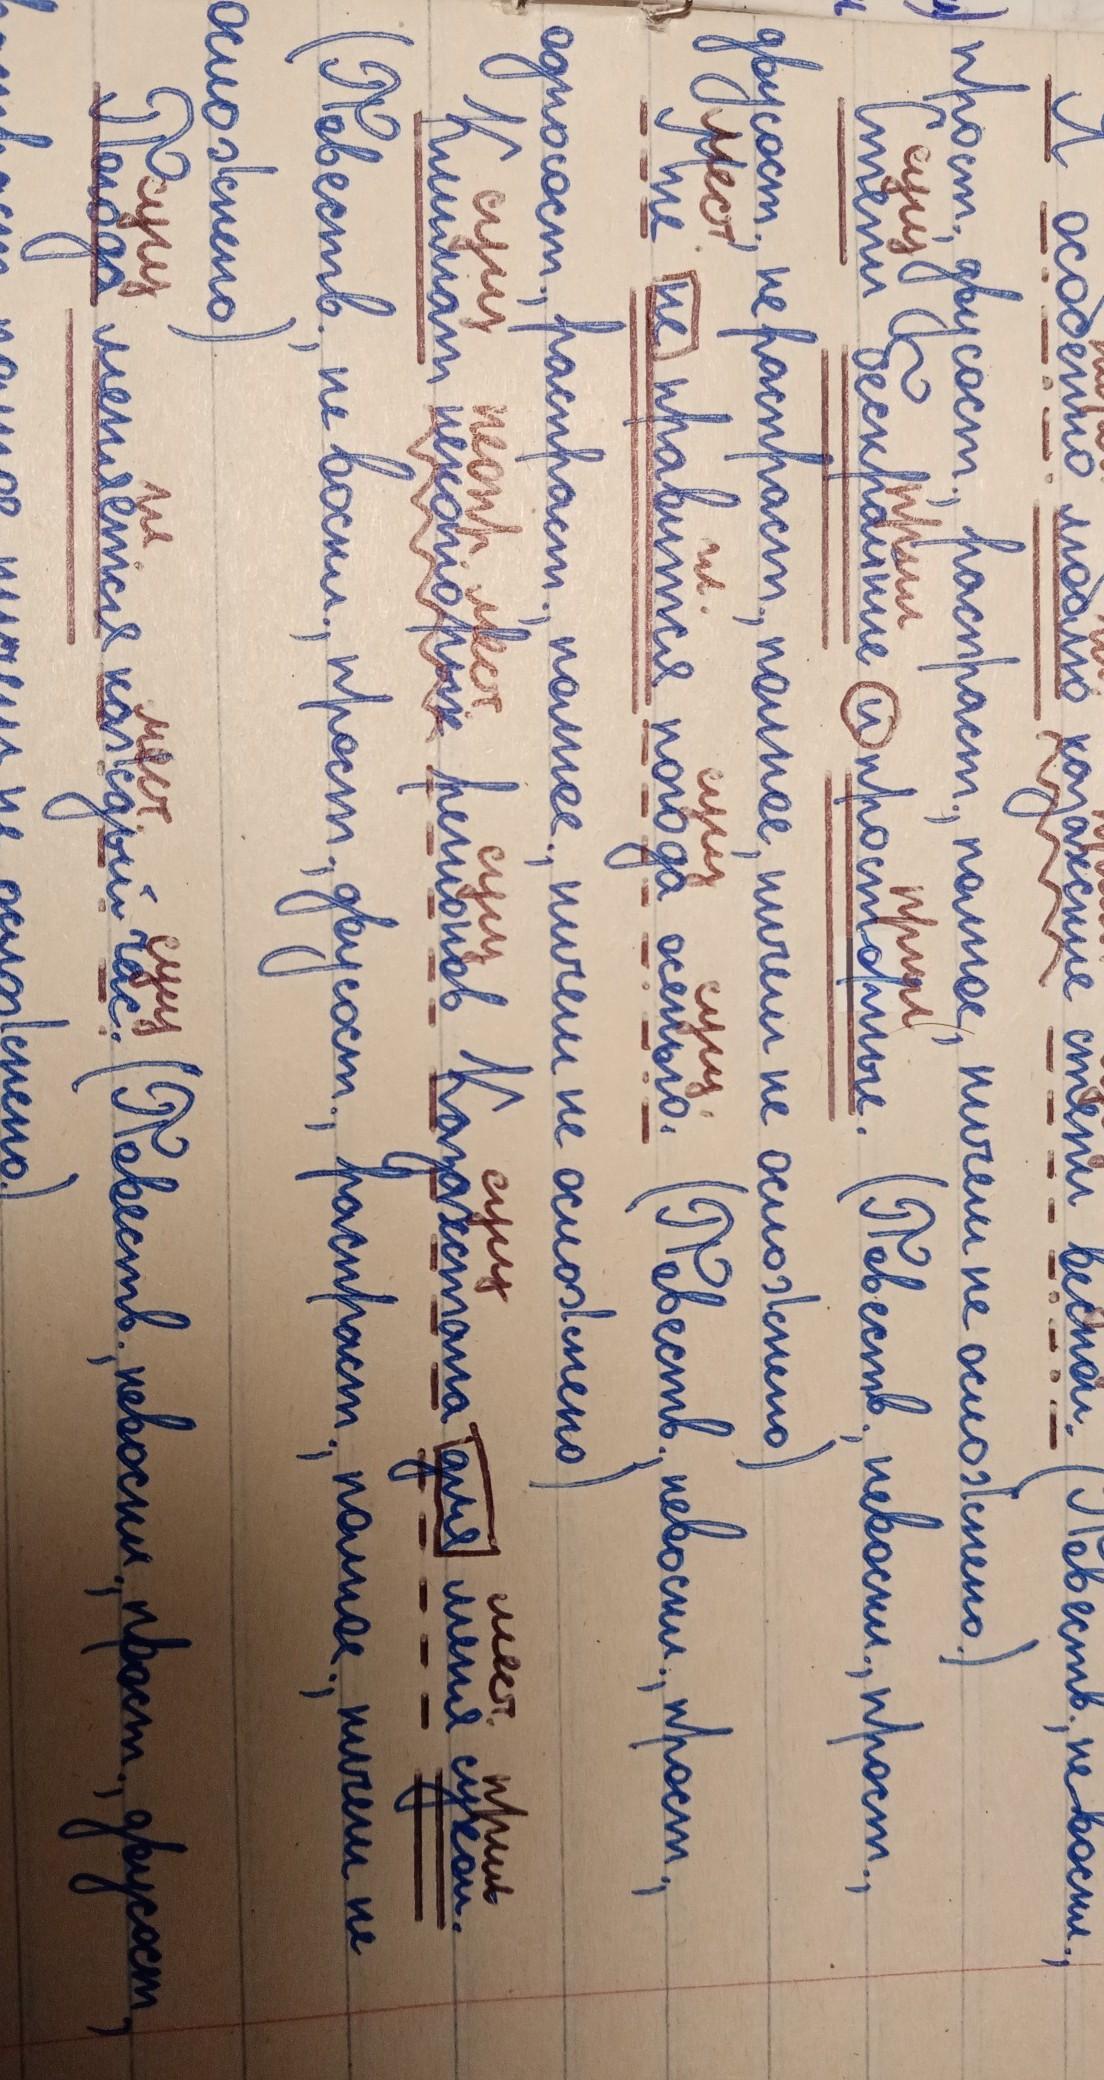 Я особенно люблю казахские степи весной. (Повеств., невоскл.,
прост., двусост., распраст., полное, ничем не осложнено.)
сущ прил прил
Степи бескрайние и просторные. (Повеств., невоскл., прост.,
двусост., нераспраст., полное, ничем не осложнено)
мест. гл. сущ сущ.
Мне не нравится погода осенью. (Повеств., невоскл., прост.,
односост., распраст., полное., ничем не осложнено)
сущ неопр. мест сущ сущ мест. прил
Климат некоторых регионов Казахстана для меня сухой.
(Повеств., не воскл., прост., двусост., распраст., полное., ничем не
осложнено)
сущ гл. мест. сущ
Погода меняется каждый час. (Повеств., невоскл., прост., двусост.,
полное ничем не осложнено.)